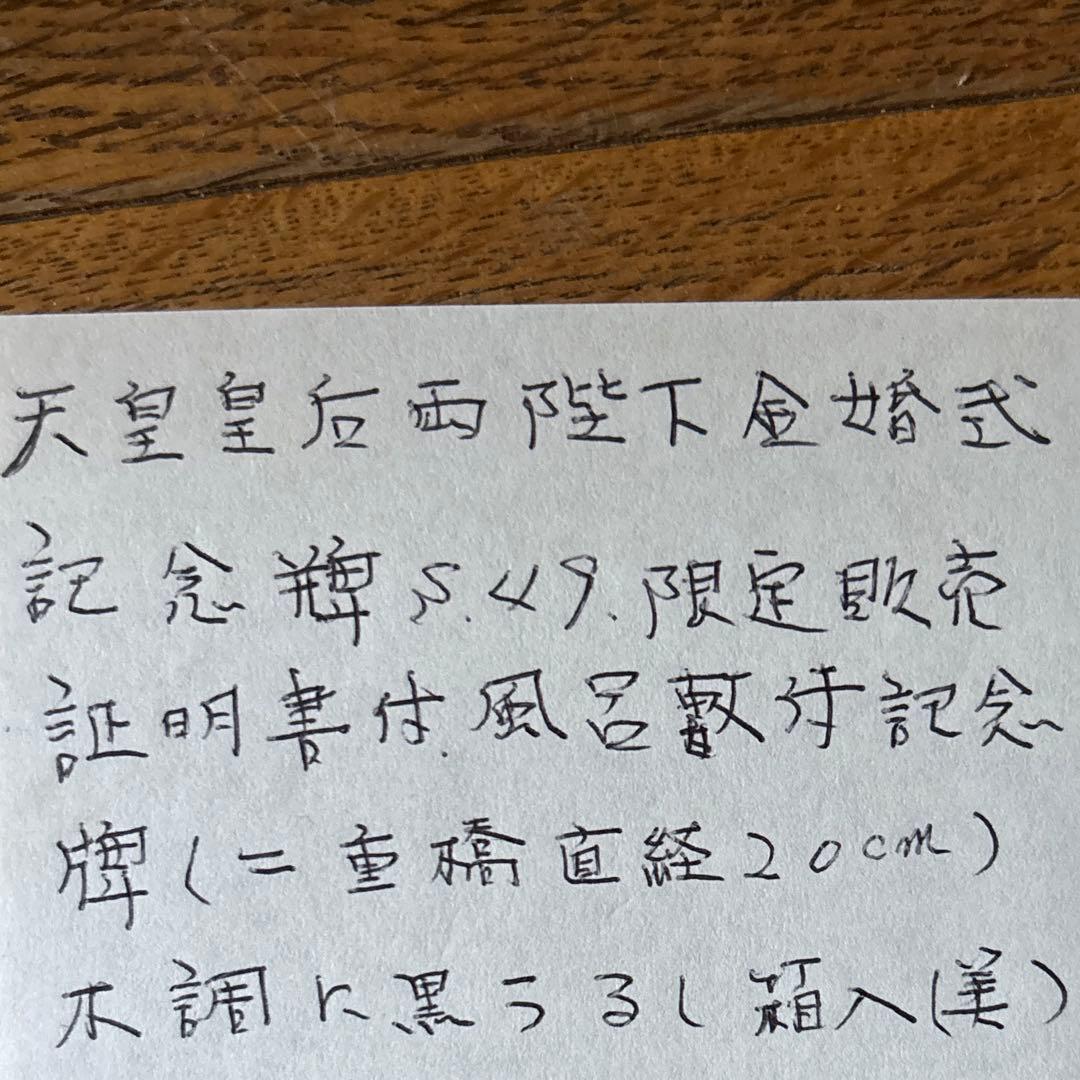 天皇皇后両陛下金婚式
記念牌S.49.限定販売
証明書付.風呂敷付記念
牌(二重橋直経20cm)
木調に黒うるし箱入(美)